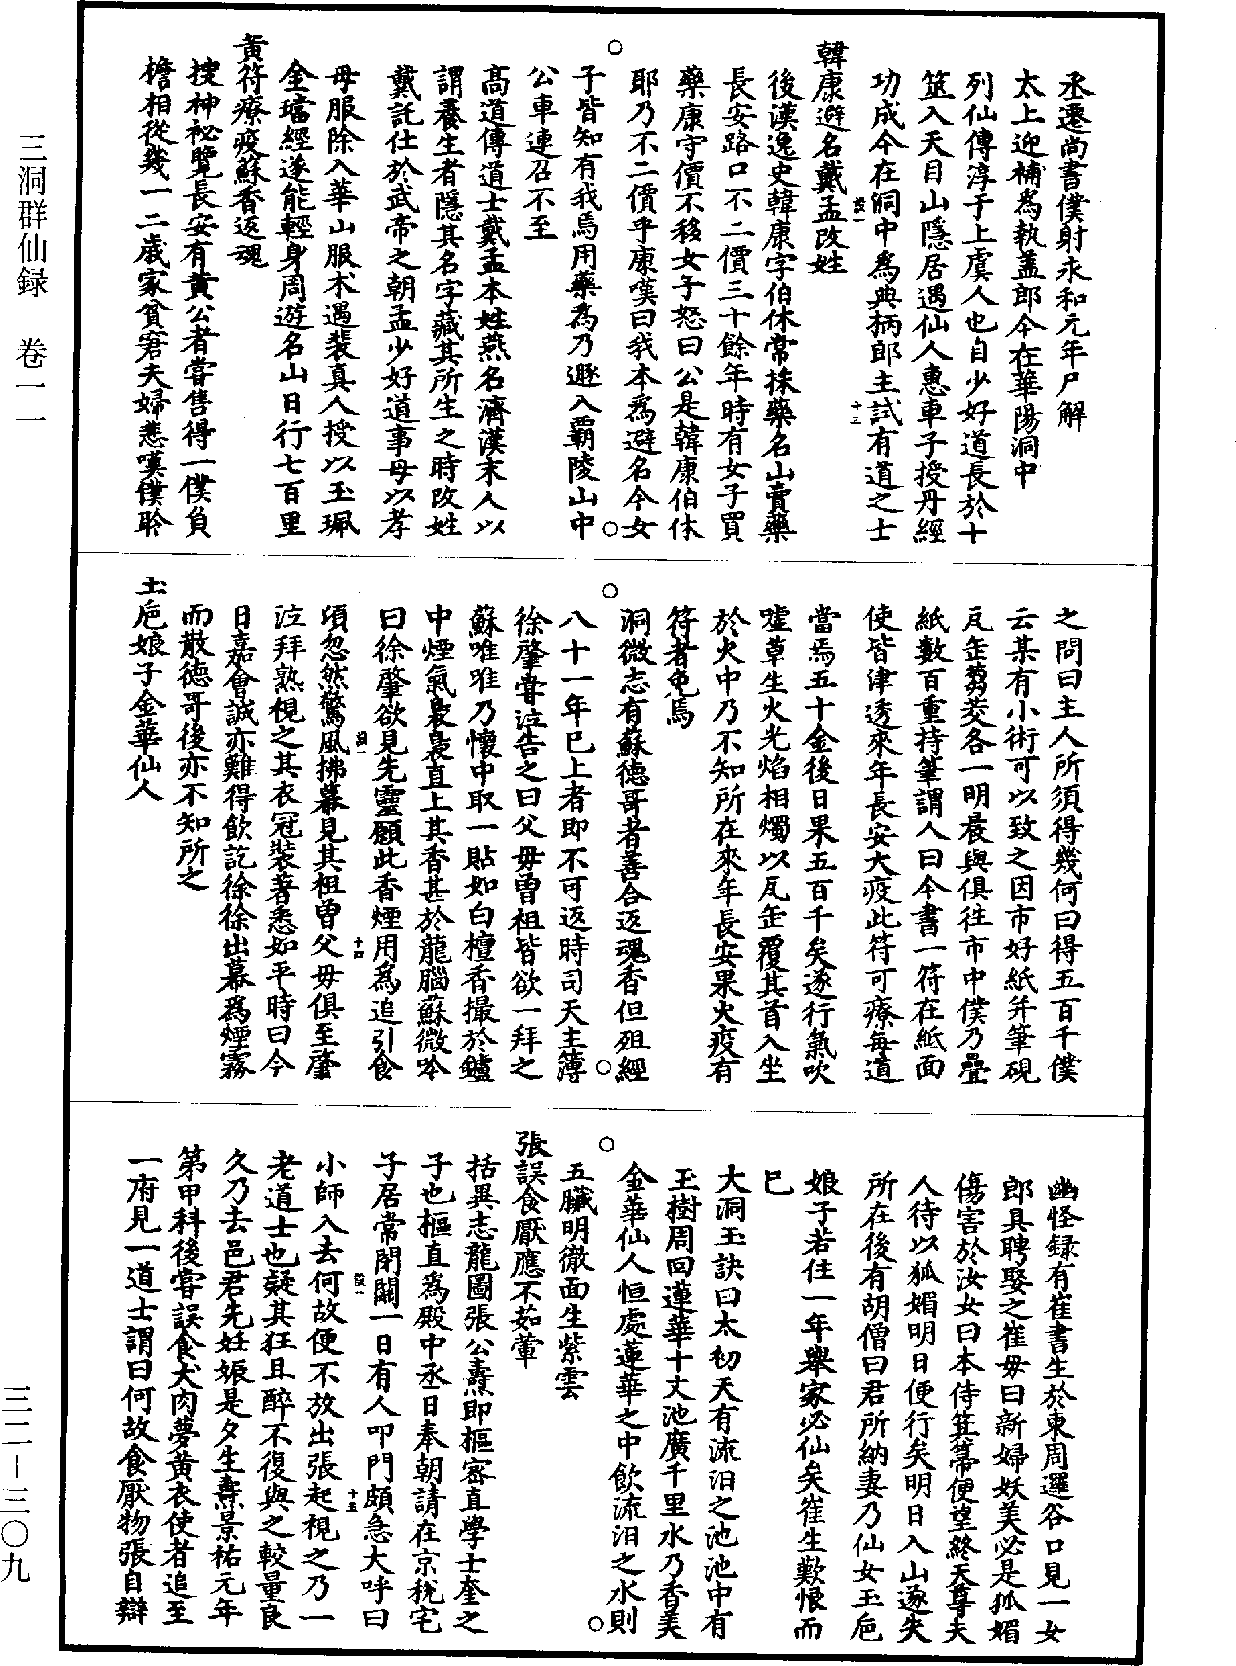 三洞群仙録　卷一一
丞遷尚書僕射永和元年尸解
太上迎補為執蓋郎今在華陽洞中
列仙傳淳于上虞人也自少好道長於十
筮入天目山隱居遇仙人惠車子授丹經
功成今在洞中為典柄郎主試有道之士
韓康避名戴孟改姓
後漢逸史韓康字伯休常採藥名山賣藥
長安路口不二價三十餘年時有女子買
藥康守價不移女子怒曰公是韓康伯休
耶乃不二價乎康嘆曰我本為避名今女
子皆知有我焉用藥為乃遯入霸陵山中
公車連召不至
高道傳道士戴孟本姓燕名濟漢末人以
謂養生者隱其名字藏其所生之時改姓
戴託仕於武帝之朝孟少好道事母以孝
母服除入華山服术遇裴真人授以玉珮
金璫經遂能輕身周遊名山日行七百里
黃符療疫蘇香返魂
搜神祕覽長安有黃公者嘗售得一僕負
檐相從幾一二歲家貧窘夫婦悲嘆僕聆
之問曰主人所須得幾何曰得五百千僕
云某有小術可以致之因市好紙并筆硯
瓦缶蒭茭各一明晨與俱往市中僕乃疊
紙數百重持筆謂人曰今書一符在紙面
使皆津透來年長安大疫此符可療每道
當焉五十金後日果五百千矣遂行氣吹
噓草生火光焰相燭以瓦缶覆其首入坐
於火中乃不知所在來年長安果火疫有
符者免焉
洞微志有蘇德哥者善合返魂香但殂經
八十一年已上者即不可返時司天主簿
徐肇嘗泣告之曰父毋曾祖皆欲一拜之
蘇唯唯乃懷中取一貼如白檀香撮於鑪
中煙氣裊裊直上其香甚於龍腦蘇微吟
曰徐肇欲見先靈願此香煙用為追引食
頃忽然驚風拂幕見其祖曾父毋俱至肇
泣拜熟視之其衣冠裝著悉如平時曰今
日嘉會誠亦難得飲訖徐徐出幕為煙霧
而散德哥後亦不知所之
玉巵娘子金華仙人
幽怪録有崔書生於東周邏谷口見一女
郎具聘娶之崔毋曰新婦妖美必是狐媚
傷害於汝女曰本侍箕箒便望終天尊夫
人待以狐媚明日便行矣明日入山遂失
所在後有胡僧曰君所納妻乃仙女玉巵
娘子若住一年舉家必仙矣崔生歎恨而
已
大洞玉訣曰太初天有流汨之池池中有
玉樹周回蓮華十丈池廣千里水乃香美
金華仙人恒處蓮華之中飲流汨之水則
五臟明徹面生紫雲
張誤食厭應不茹葷
括異志龍圖張公燾即樞密直學士奎之
子也樞直為殿中丞日奉朝請在京稅宅
子居常閉關一日有人叩門頗急大呼曰
小師入去何故便不放出張起視之乃一
老道士也疑其狂且醉不復與之較量良
久乃去邑君先妊娠是夕生燾景祐元年
第甲科後嘗誤食犬肉夢黃衣使者追至
一府見一道士謂曰何故食厭物張自辯
三二－三〇九